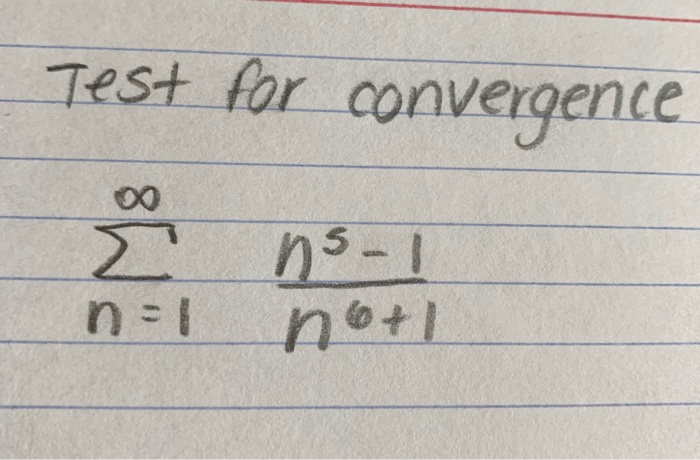 Test for convergence
∞
Σ n⁵ - 1
n = 1 n⁶ + 1